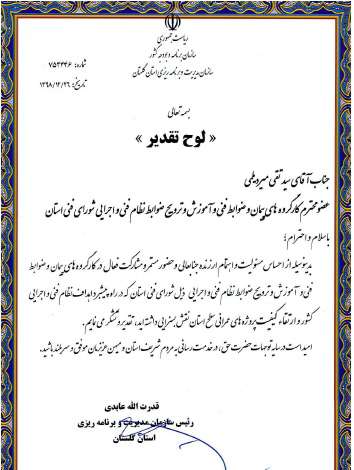 ریاست جمهوری
سازمان برنامه و بودجه کشور
سازمان مدیریت و برنامه ریزی استان گلستان
شماره: ۷۵۳۴۴۶
تاریخ: ۱۳۹۸/۱۲/۲۶
بسمه تعالی
« لوح تقدیر »
جناب آقای سید تقی میردیلمی
عضو محترم کارگروه های پیمان و ضوابط فنی و آموزش و ترویج ضوابط نظام فنی و اجرایی شورای فنی استان
باسلام و احترام؛
بدینوسیله از احساس مسئولیت و اهتمام ارزنده جنابعالی و حضور مستمر و مشارکت فعال در کارگروه های پیمان و ضوابط
فنی و آموزش و ترویج ضوابط نظام فنی و اجرایی ذیل شورای فنی استان که در راه پیشبرد اهداف نظام فنی و اجرایی
کشور و ارتقاء کیفیت پروژه های عمرانی سطح استان نقش بسزایی داشته اید، تقدیر و تشکر می نمایم.
امید است در سایه توجهات حضرت حق، در خدمت رسانی به مردم شریف استان و میهن عزیزمان موفق و سربلند باشید.
قدرت الله عابدی
رئیس سازمان مدیریت و برنامه ریزی
استان گلستان